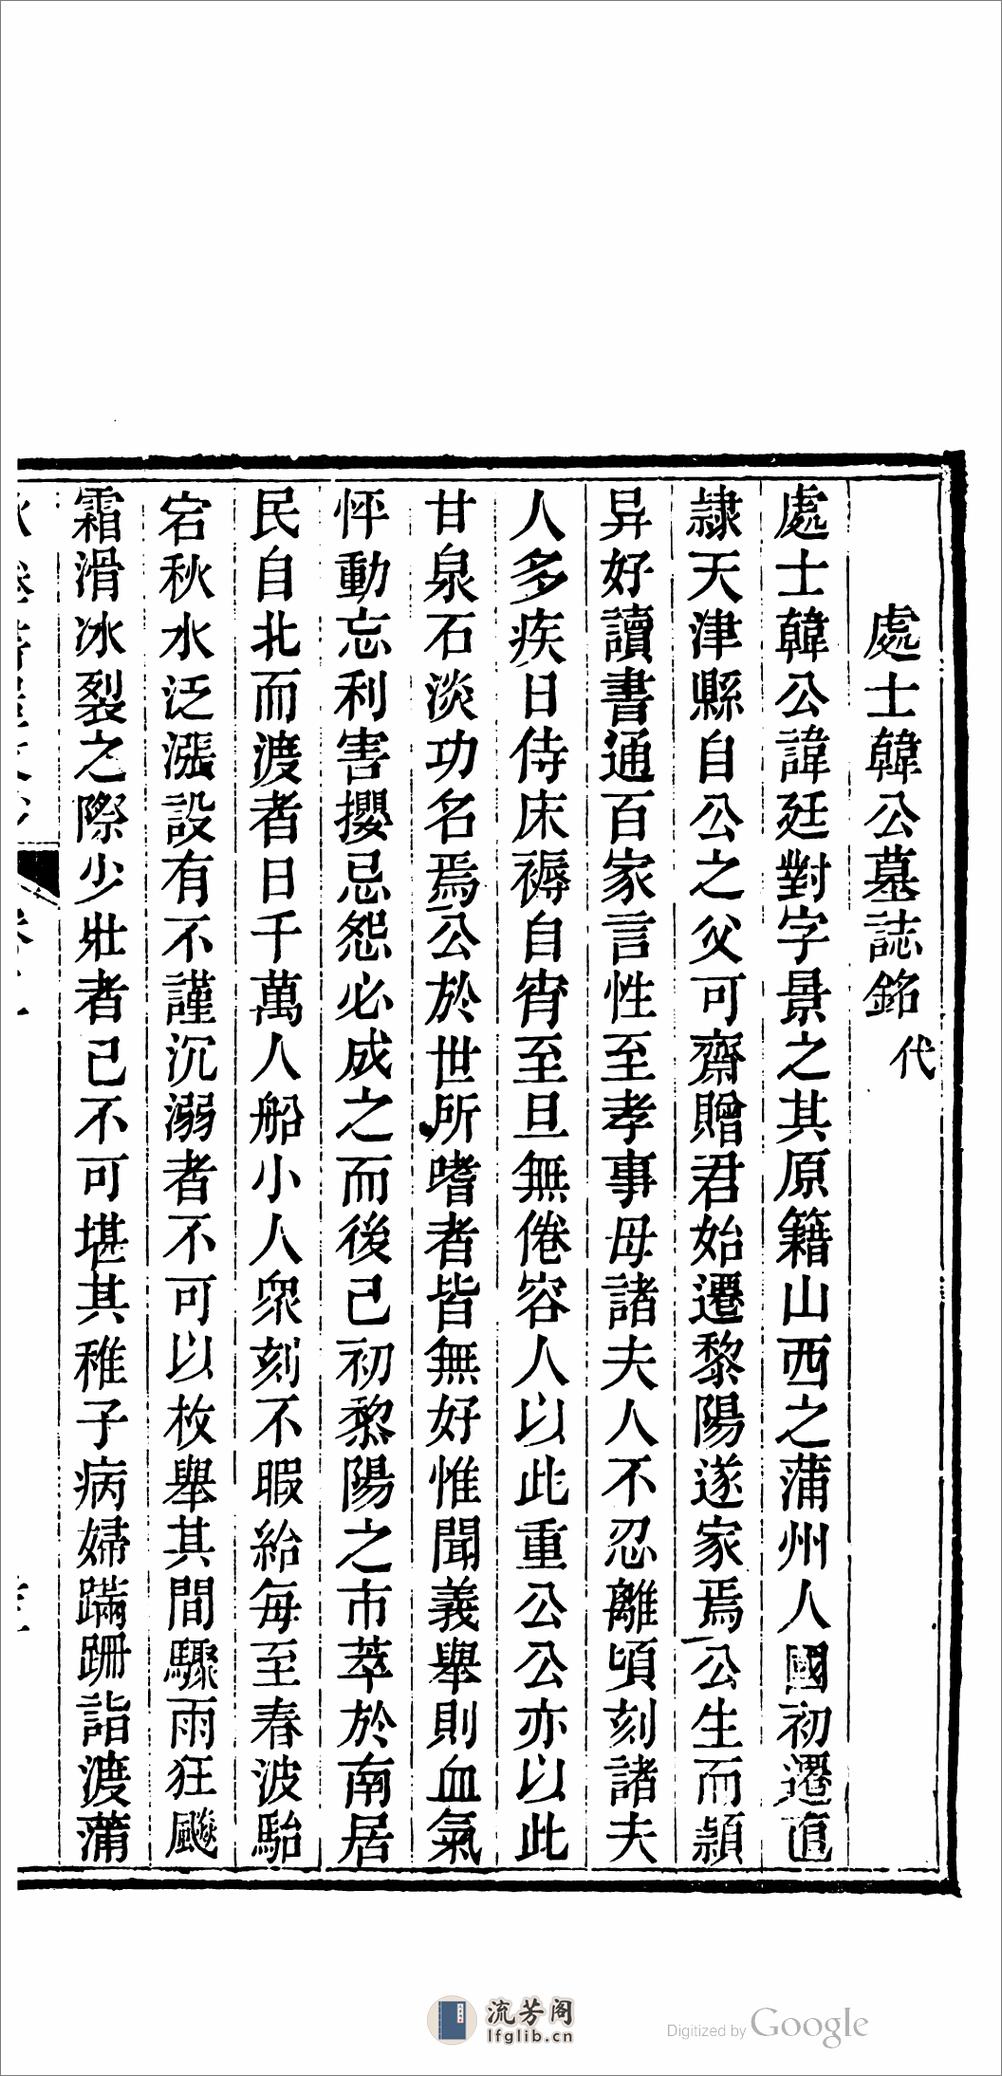 處士韓公墓誌銘 代
處士韓公諱廷對字景之其原籍山西之蒲州人國初遷直
隷天津縣自公之父可齋贈君始遷黎陽遂家焉公生而穎
异好讀書通百家言性至孝事母諸夫人不忍離頃刻諸夫
人多疾日侍床褥自宵至旦無倦容人以此重公公亦以此
甘泉石淡功名焉公於世所嗜者皆無好惟聞義舉則血氣
怦動忘利害攖忌怨必成之而後己初黎陽之市萃於南居
民自北而渡者日千萬人船小人衆刻不暇給每至春波駘
宕秋水泛漲設有不謹沉溺者不可以枚舉其間驟雨狂飈
霜滑冰裂之際少壯者己不可堪其稚子病婦蹣跚詣渡蒲
流芳阁
lfglib.cn
Digitized by Google